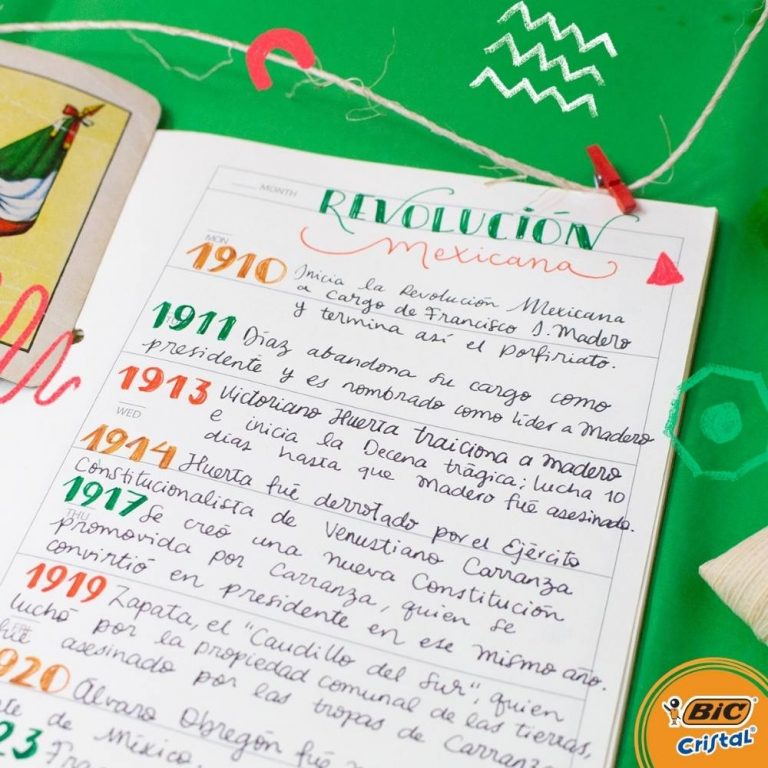 MONTH
REVOLUCIÓN
Mexicana
MON
1910 Inicia la Revolución Mexicana
a cargo de Francisco I. Madero
y termina así el porfiriato.
1911 Díaz abandona su cargo como
presidente y es nombrado como líder a Madero
1913 Victoriano Huerta traiciona a madero
e inicia la Decena trágica; lucha 10
días hasta que Madero fué asesinado.
WED
1914 Huerta fué derrotado por el Ejército
Constitucionalista de Venustiano Carranza
THU
1917 Se creó una nueva Constitución
promovida por Carranza, quien se
convirtió en presidente en ese mismo año.
1919 Zapata, el "Caudillo del Sur", quien
luchó por la propiedad comunal de las tierras,
asesinado por las tropas de Carranza
1920 Álvaro Obregón fué
de México.
23
BIC
Cristal